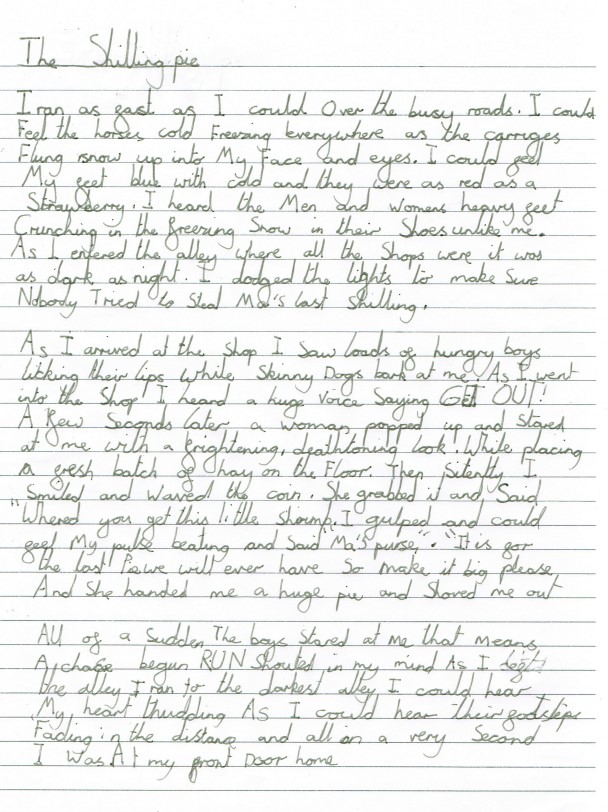 The Shilling pie
I ran as fast as I could Over the busy roads. I could
Feel the horses cold Freezing everywhere as the carriges
Flung snow up into My Face and eyes. I could feel
My feet blue with cold and they were as red as a
Strawberry. I heard the Men and Womens heavy feet
Crunching in the freezing Snow in their Shoes unlike me.
As I entered the alley where all the Shops were it was
as dark as night. I dodged the lights to make Sure
Nobody Tried to Steal Ma's last Shilling.
As I arrived at the Shop I Saw loads of hungry boys
licking their lips While Skinny Dogs bark at me. As I went
into the Shop I heard a huge Voice Saying GET OUT!
A Few Seconds later a woman popped up and Stared
at me with a frightening, deathtoning look. While placing
a fresh batch of hay on the Floor. Then Silently I
Smiled and Waved the coin. She grabbed it and Said
"Whered you get this little Shrimp. I gulped and could
feel My pulse beating and Said "Ma's purse". "It is for
the last Pie we will ever have So make it big please
And She handed me a huge pie and Shoved me out
All of a Sudden The boys Stared at Me that Means
A chase begun RUN Shouted in my mind As I left
the alley I ran to the darkest alley I could hear
My heart thudding As I could hear their footsteps
Fading in the distance and all on a very Second
I Was At my front Door home